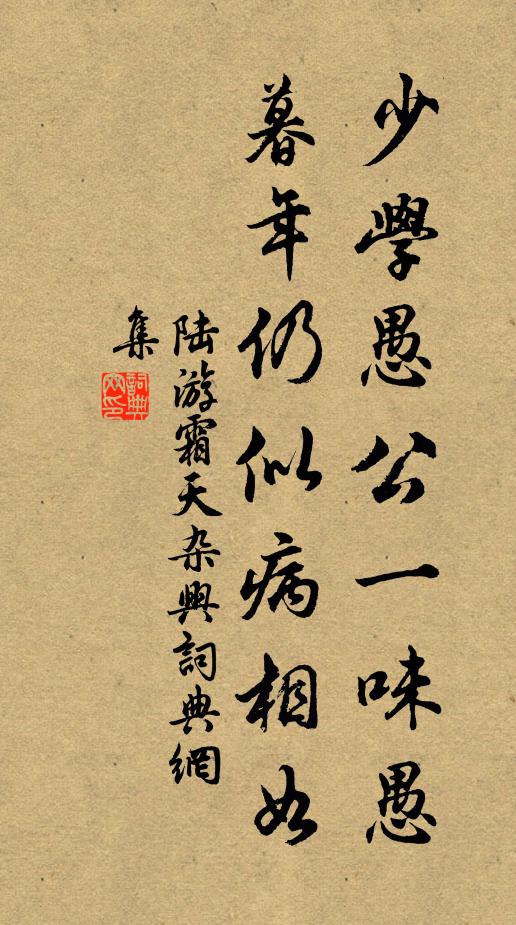 少學愚公一味愚
暮年仍似病相如
陆游霜天杂興詞典網
集
詞典網印